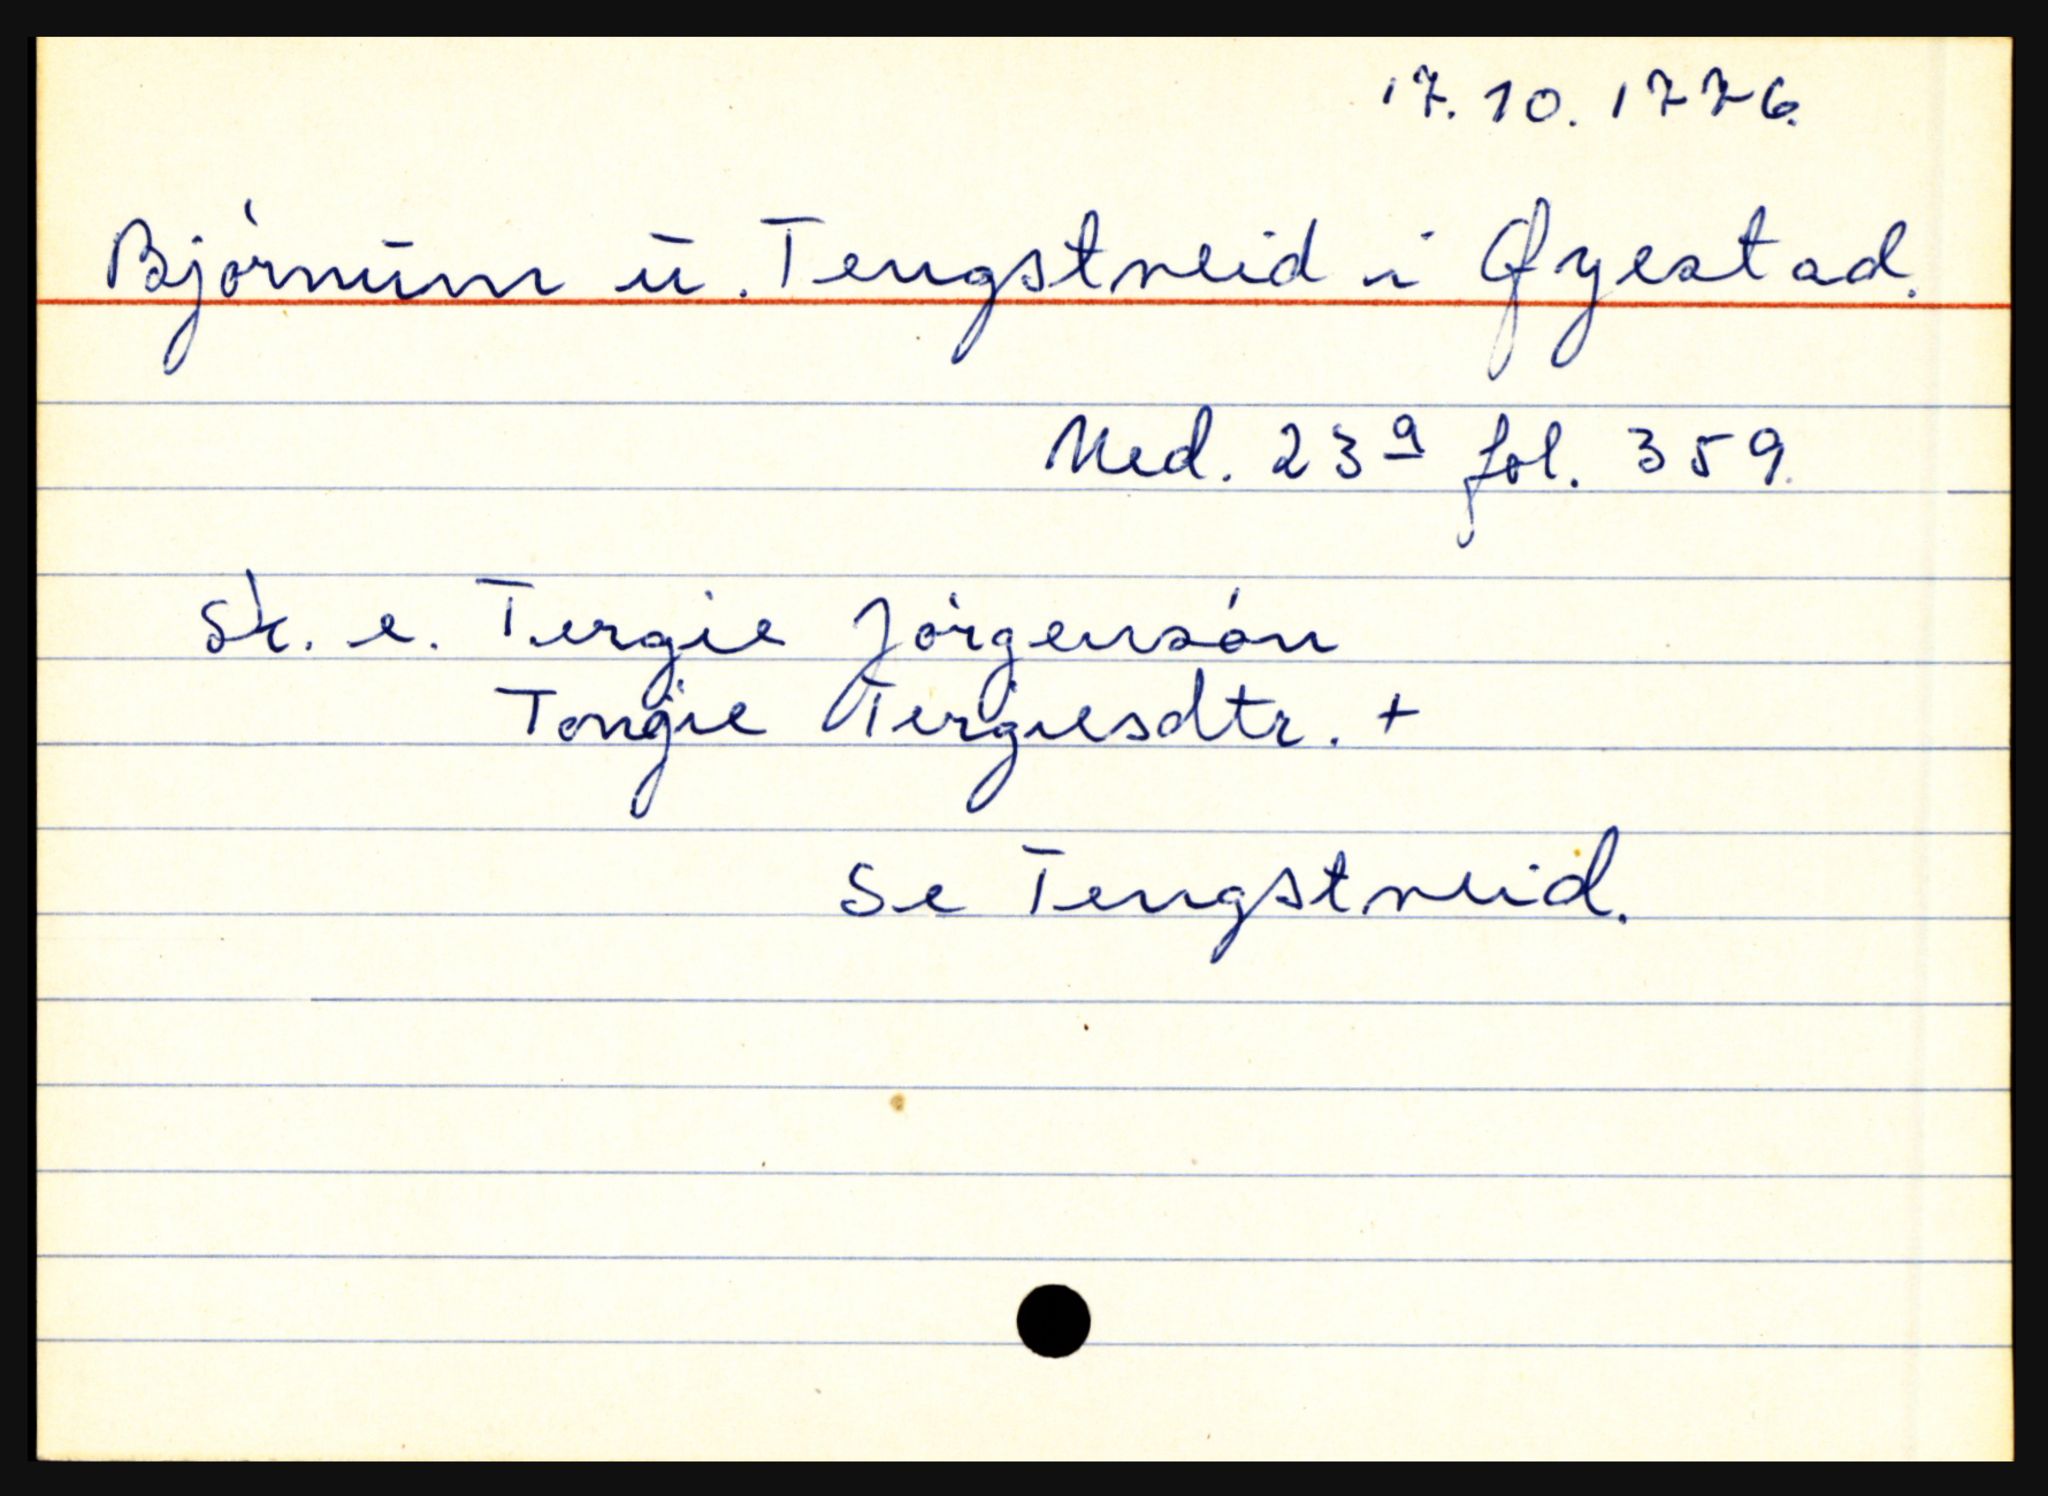 17.10.1776.
Bjórnům ů. Tengstveid i Øyestad.
Ned. 23a fol. 359.
Sk. e. Tergie Jórgensón
Tongie Tergiesdtr. +
Se Tengstveid.